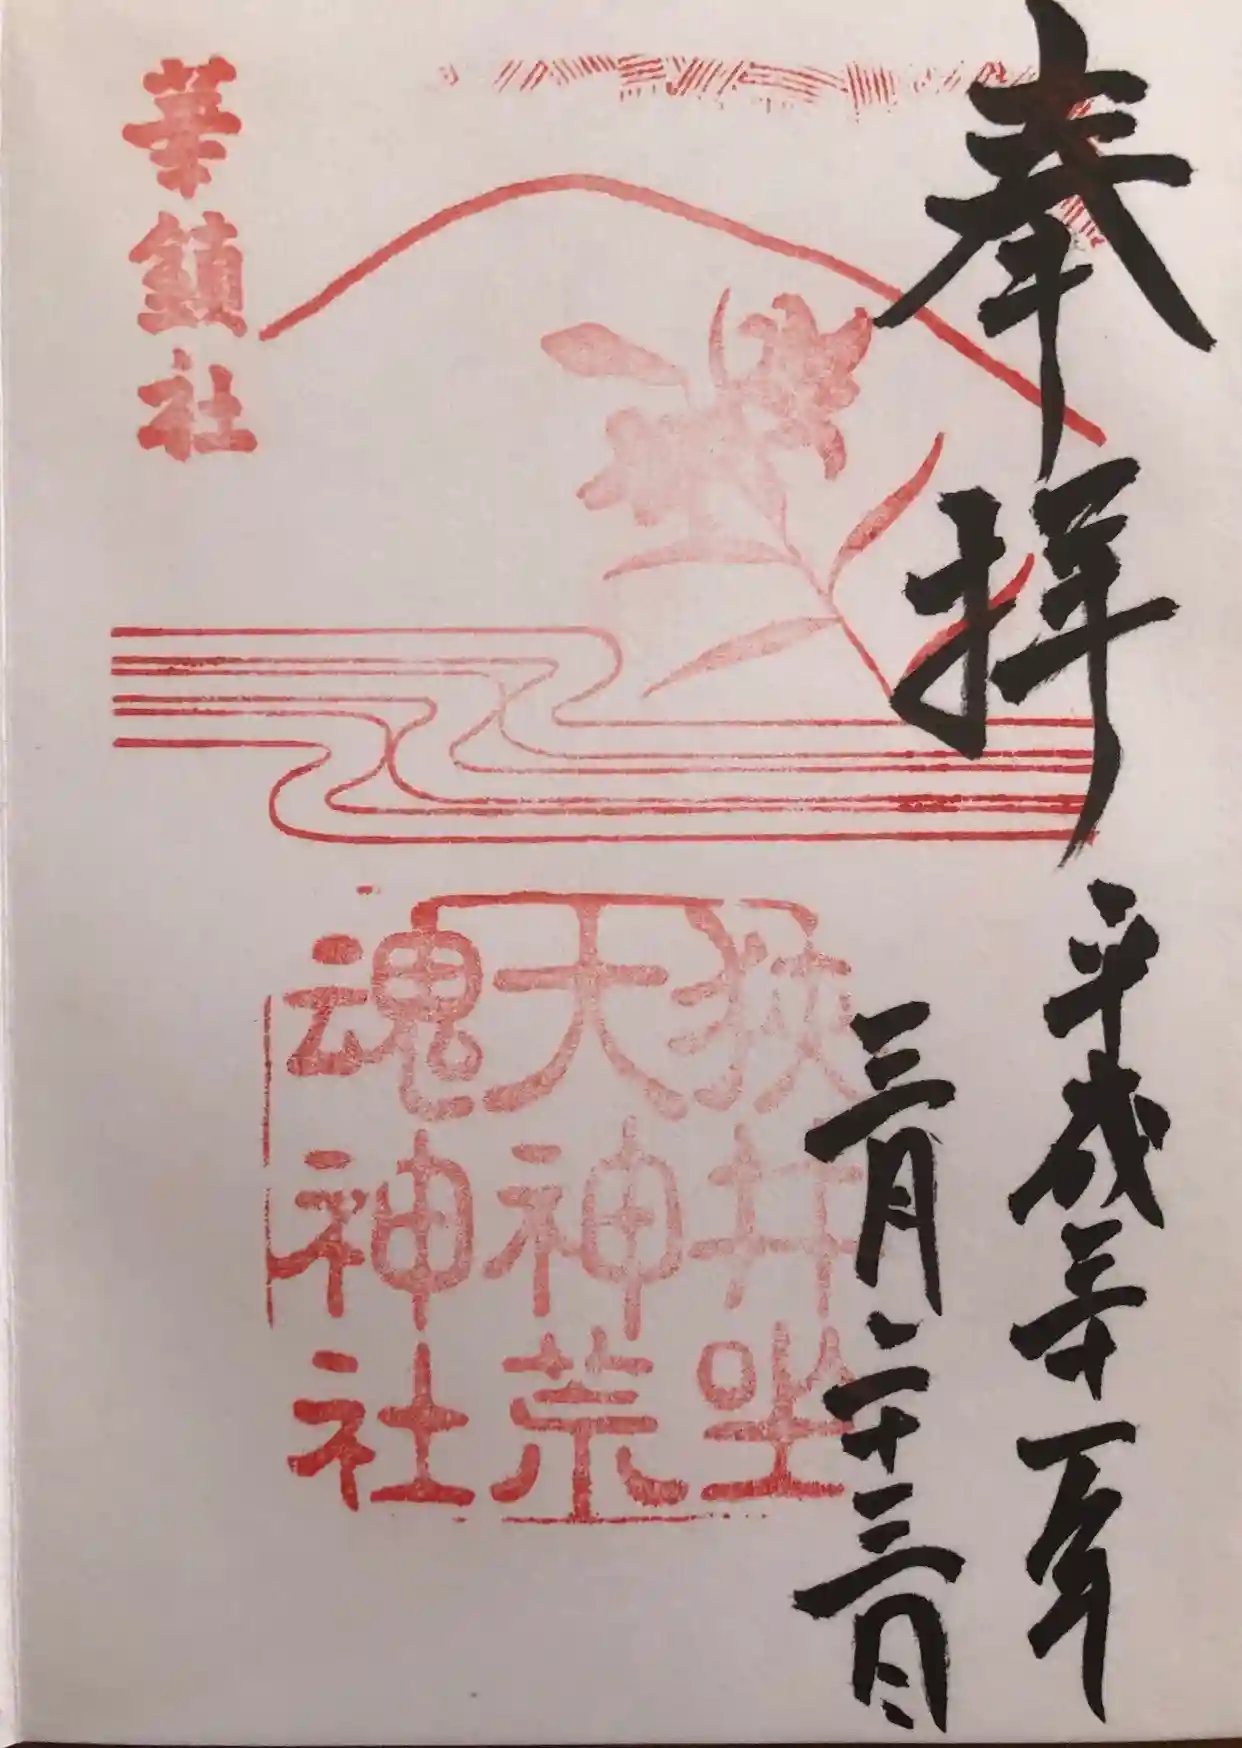 奉拝
平成三十一年
三月二十三日
狭井坐
大神荒
魂神社
華鎮社